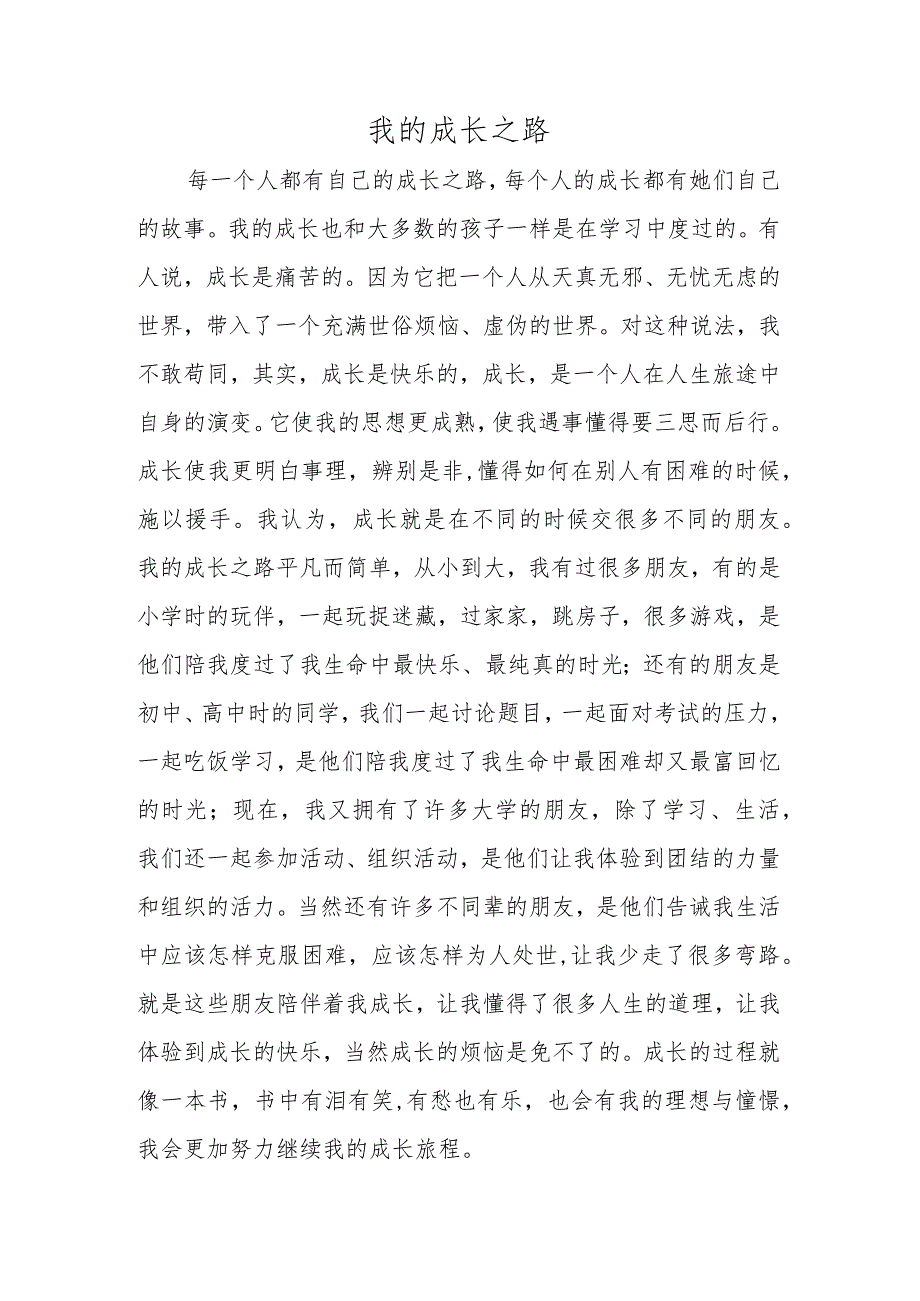 我的成长之路
每一个人都有自己的成长之路，每个人的成长都有她们自己
的故事。我的成长也和大多数的孩子一样是在学习中度过的。有
人说，成长是痛苦的。因为它把一个人从天真无邪、无忧无虑的
世界，带入了一个充满世俗烦恼、虚伪的世界。对这种说法，我
不敢苟同，其实，成长是快乐的，成长，是一个人在人生旅途中
自身的演变。它使我的思想更成熟，使我遇事懂得要三思而后行。
成长使我更明白事理，辨别是非,懂得如何在别人有困难的时候，
施以援手。我认为，成长就是在不同的时候交很多不同的朋友。
我的成长之路平凡而简单，从小到大，我有过很多朋友，有的是
小学时的玩伴，一起玩捉迷藏，过家家，跳房子，很多游戏，是
他们陪我度过了我生命中最快乐、最纯真的时光；还有的朋友是
初中、高中时的同学，我们一起讨论题目，一起面对考试的压力，
一起吃饭学习，是他们陪我度过了我生命中最困难却又最富回忆
的时光；现在，我又拥有了许多大学的朋友，除了学习、生活，
我们还一起参加活动、组织活动，是他们让我体验到团结的力量
和组织的活力。当然还有许多不同辈的朋友，是他们告诫我生活
中应该怎样克服困难，应该怎样为人处世,让我少走了很多弯路。
就是这些朋友陪伴着我成长，让我懂得了很多人生的道理，让我
体验到成长的快乐，当然成长的烦恼是免不了的。成长的过程就
像一本书，书中有泪有笑,有愁也有乐，也会有我的理想与憧憬，
我会更加努力继续我的成长旅程。